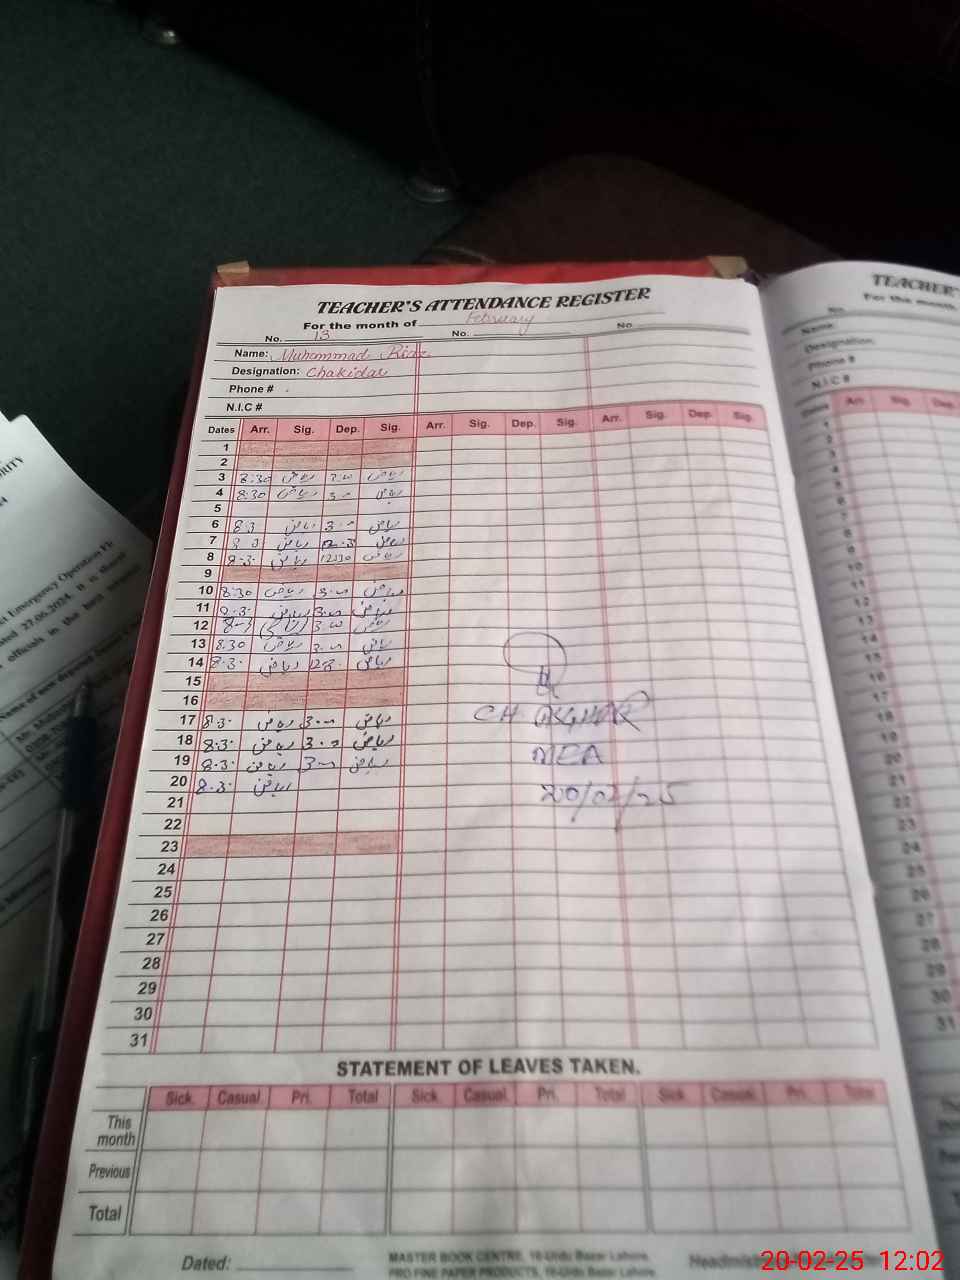 TEACHER'S ATTENDANCE REGISTER
For the month of February
No. 13 No. No
Name: Muhammad
Designation: Chakidar
Phone #
N.I.C #
Dates Arr. Sig. Dep. Sig. Arr. Sig. Dep. Sig. Arr. Sig. Dep. Sig.
1
2
3 8:30 ریاض 3:00 ریاض
4 8:30 ریاض 3-0 ریاض
5
6 8-3 ریاض 3-0 ریاض
7 8-3 ریاض ریاض
8 8-3- ریاض 12:30 ریاض
9
10 8:30 ریاض 3-0 ریاض
11 8-3- ریاض 3-0 ریاض
12 8-3 ریاض 3-0 ریاض
13 8.30 ریاض 3-0 ریاض
14 8-3- ریاض ریاض
15
16
17 8-3- ریاض 3-0 ریاض
18 8-3- ریاض 3-0 ریاض
19 8-3- ریاض 3-0 ریاض
20 8-3- ریاض
21
22
23
24
25
26
27
28
29
30
31
CH. ASGHAR
MEA
20/02/25
STATEMENT OF LEAVES TAKEN.
Sick. Casual. Pri. Total Sick. Casual. Pri. Total Sick. Casual. Pri. Total
This month
Previous
Total
Dated:
MASTER BOOK CENTRE, 16-Urdu Bazar Lahore.
PRO FINE PAPER PRODUCTS, 16-Urdu Bazar Lahore.
TEACHER'S
For the month
No.
Name:
Designation:
Phone #
N.I.C #
Dates Arr. Sig. Dep.
20-02-25 12:02